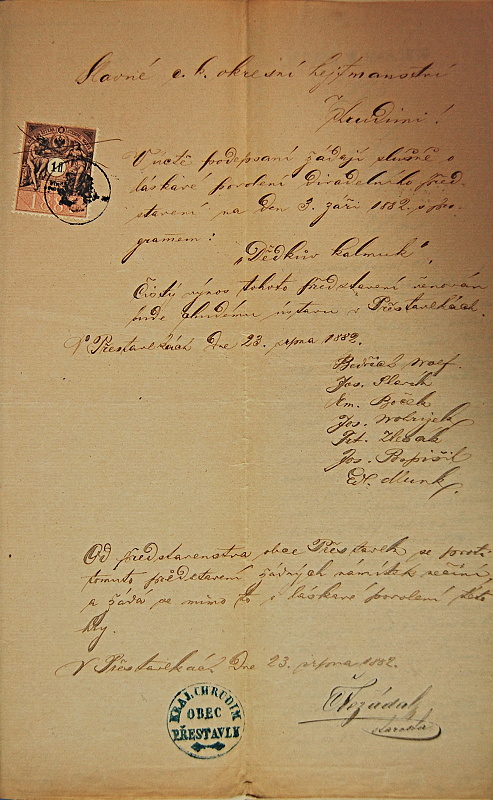 Slavné c. k. okresní hejtmanství
v Chrudimi!
V úctě podepsaní žádají slušně o
láskavé povolení divadelního před-
stavení na den 3. září 1882. s pro-
gramem:
"Dědkův kalmuk",
Čistý výnos tohoto představení věnován
bude chudému ústavu v Přestavlkách.
V Přestavlkách dne 23. srpna 1882.
Bedřich Wolf.
Jos. Slavík
Em. Boček
Jos.
Frt. Zlesak
Jos. Pospíšil
Ed. Munk.
Od představenstva obce Přestavlk se proti
tomuto představení žádných námitek nečiní,
a žádá se mimo to o láskavé povolení této
hry.
V Přestavlkách dne 23. srpna 1882.
starosta
KRAJ. CHRUDIM
OBEC
PŘESTAVLK